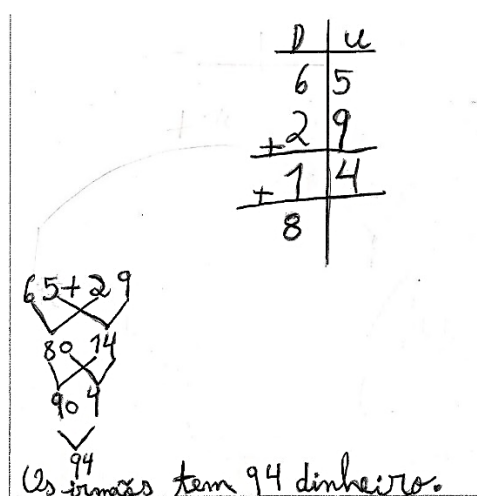 D U
6 5
+ 2 9
+ 1 4
8
65+29
80 14
90 4
94
Os irmãos tem 94 dinheiro.